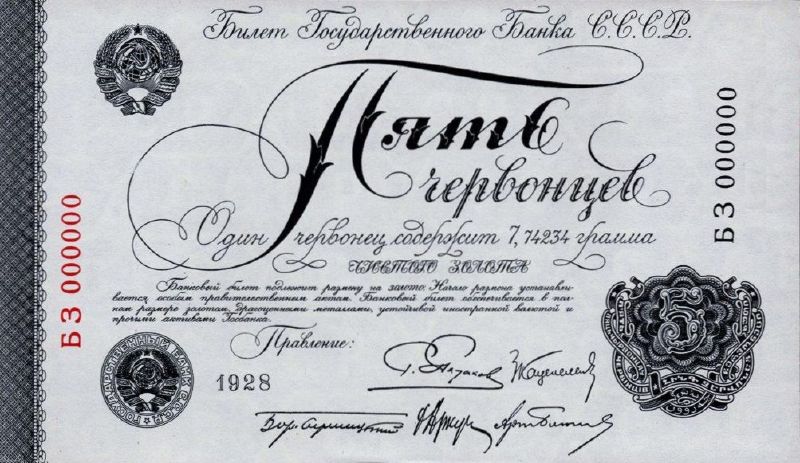 Билет Государственного Банка С.С.С.Р.
Пять
червонцев
Один червонец содержит 7,74234 грамма
чистого золота
Банковый билет подлежит размену на золото. Начало размена устанавли-
вается особым правительственным актом. Банковый билет обеспечивается в пол-
ном размере золотом, драгоценными металлами, устойчивой иностранной валютой и
прочими активами Госбанка.
Правление:
1928
БЗ 000000
БЗ 000000
5
ГОСУДАРСТВЕННЫЙ БАНК С.С.С.Р.